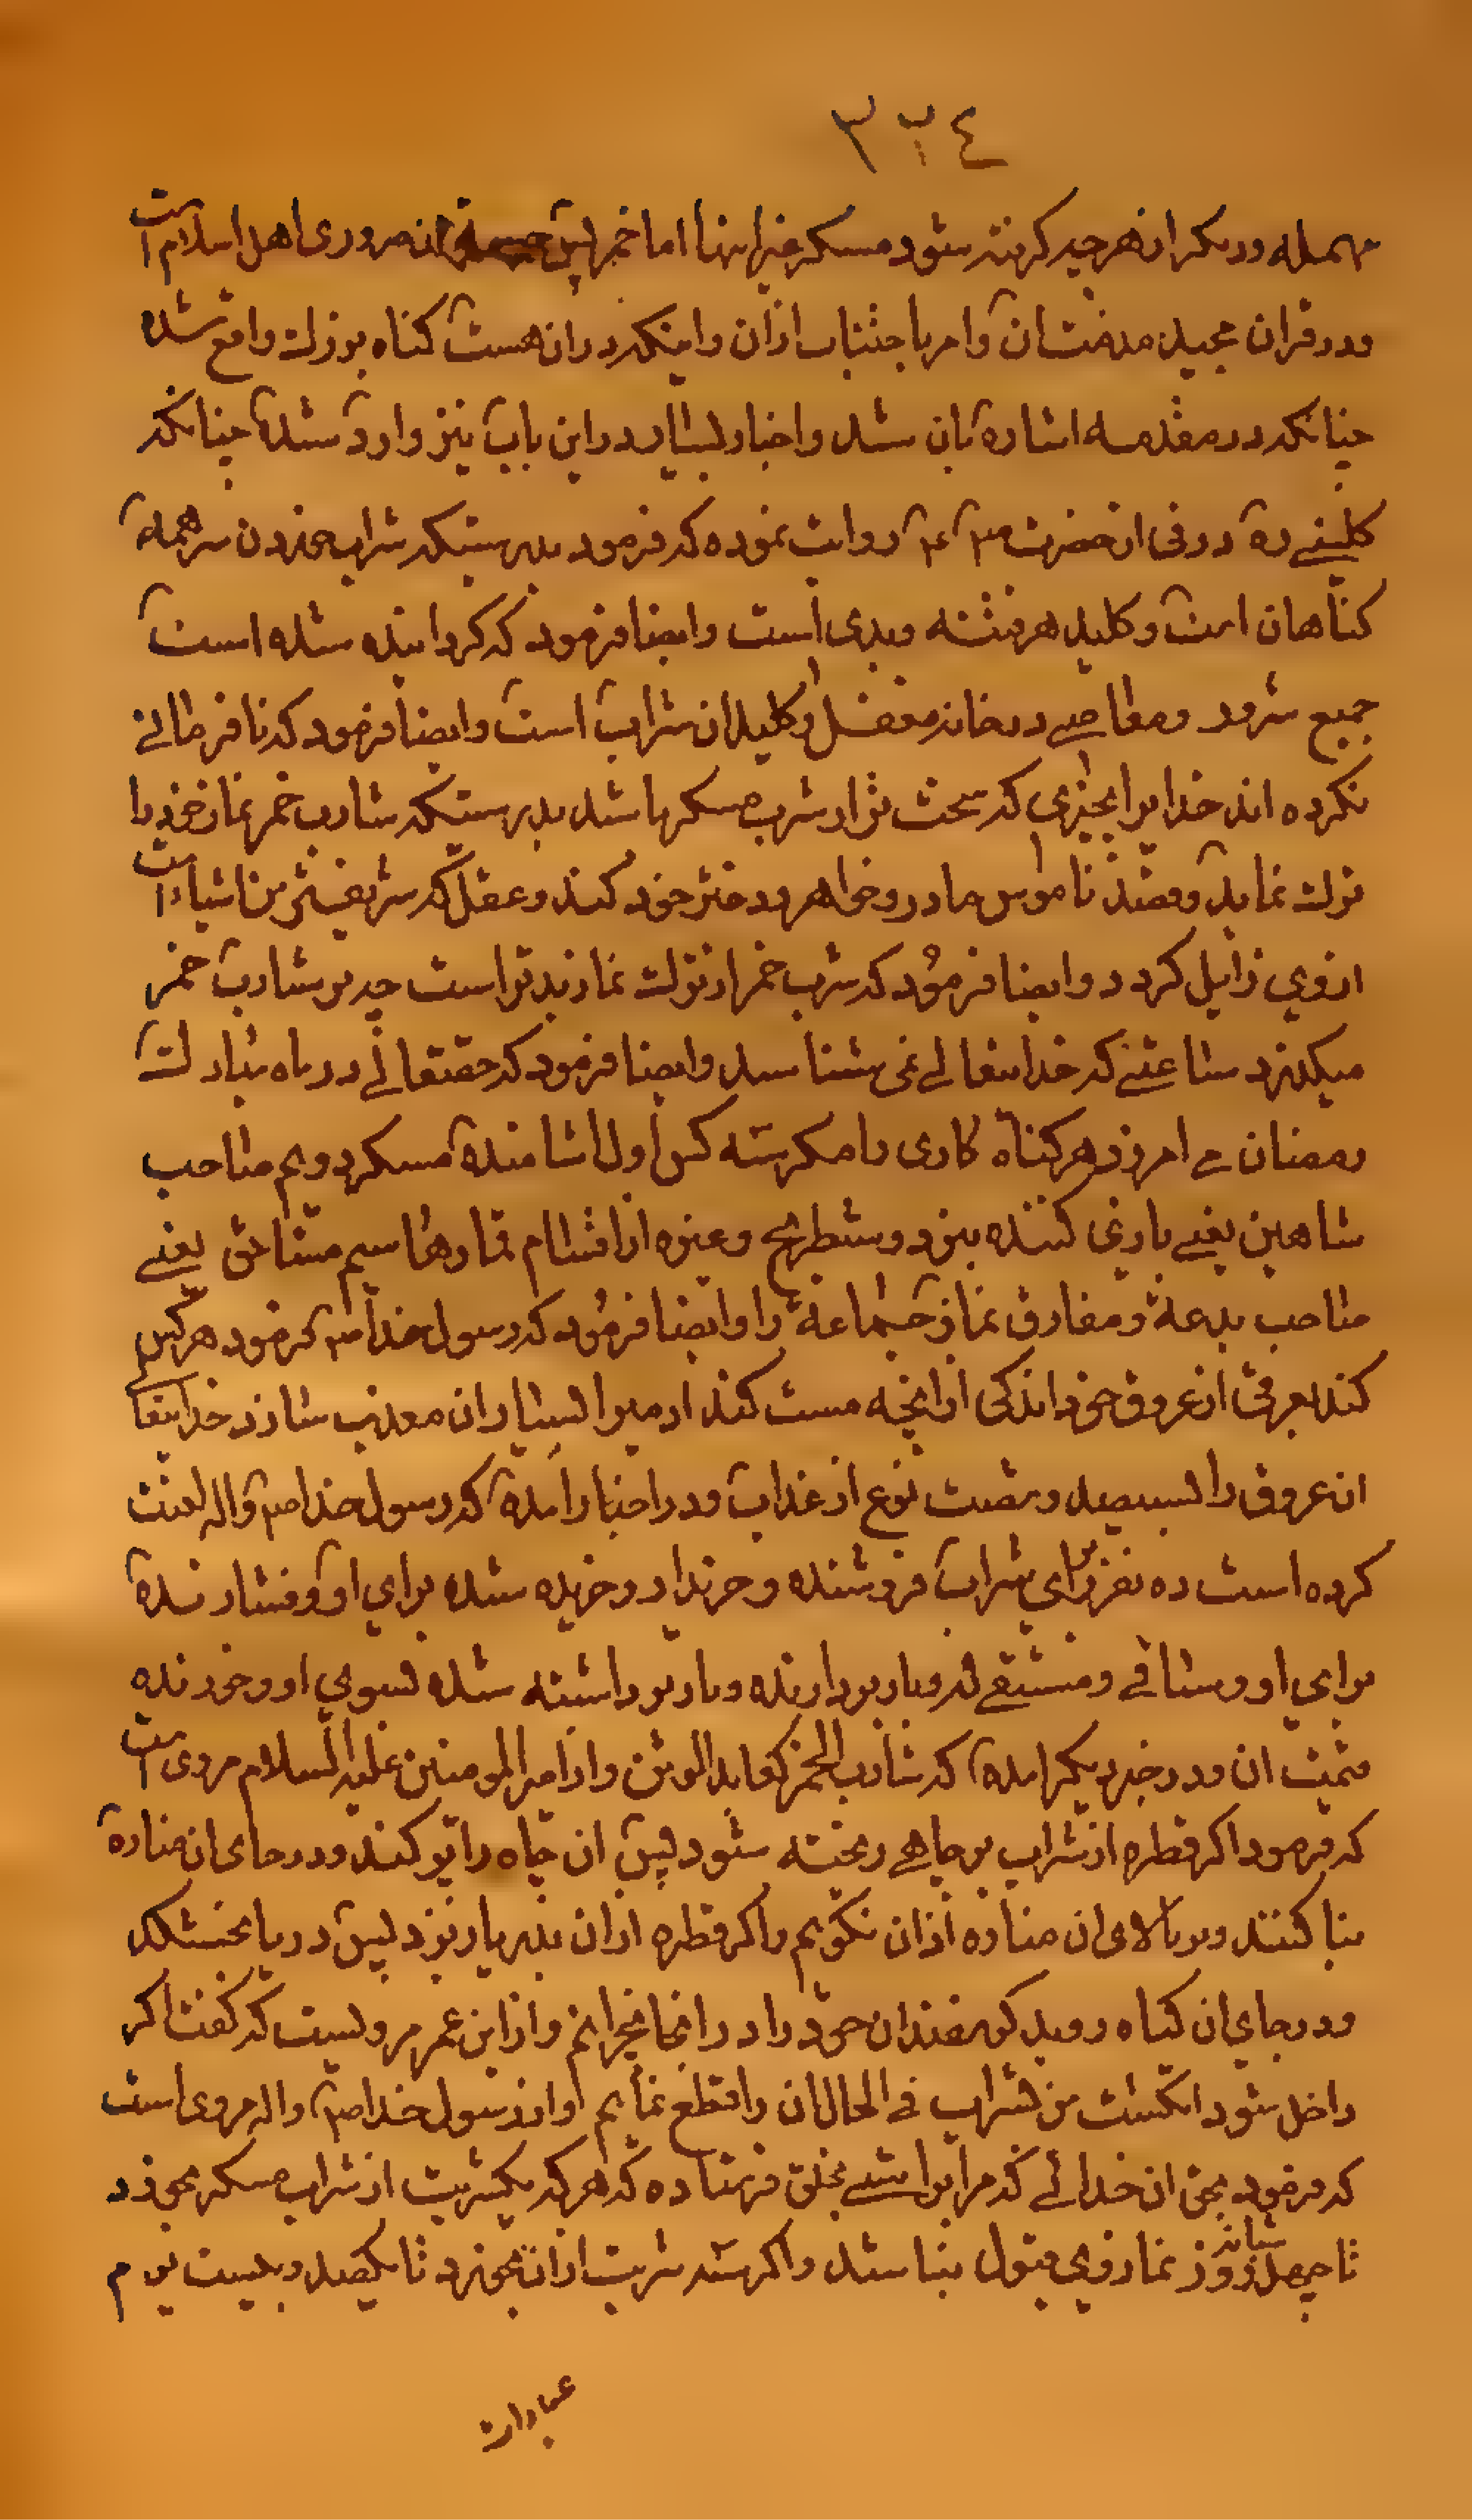 ٣٢٤
مهمله ودیکر از هرچیز کرفته شود مسکر غیر اینها اما خمر پس از ضروری اهل اسلام است
ودر قران مجید مذمت ان و امر باجتناب ازان و اینکه دران هست کناه بزرك واقع شده
چنانکه در مقدمه اشاره بان شد واخبار بسیار در این باب نیز وارد شده چنانکه
کلینی ره در فی از حضرت روایت نموده که فرمود بدرستیکه شراب خوردن سر همه
کناهان است و کلید هر فتنه وبدی است وایضا فرمود که کردانیده شده است
جمیع شرور ومعاصی در خانه مقفل و کلید ان شراب است وایضا فرمود که نافرمانی
نکرده اند خدایرا بچیزی که سخت تر از شرب مسکر باشد بدرستیکه شارب خمر نماز خود را
ترك نماید وقصد ناموس مادر و خواهر ودختر خود کند وعقل که شریفترین اشیاء است
از وی زایل کردد وایضا فرمود که شرب خمر از ترك نماز بدتر است چه بر شارب خمر
میکذرد ساعتی که خدایتعالی نمی شناسد وایضا فرمود که حقتعالی در ماه مبارك
رمضان می امرزد هر کناه کاری را مکر سه کس اول اشامنده مسکر دویم صاحب
شاهین یعنی بازی کننده بنرد وشطرنج وغیره از اقسام قمارها سیم مشاحن یعنی
صاحب بدعة ومفارق نماز جماعة را وایضا فرمود که رسول خدا ص فرمود هرکس
کند بعرقی از عروق خود اندکی از انچه مست کند ادمیرا بسیار ان معذب سازد خدایتعالی
ان عروق را بسیصد وشصت نوع از عذاب ودر اخبار امده که رسول خدا ص واله لعنت
کرده است ده نفر برای شراب فروشنده وخریدار وخریده شده برای او وفشارنده
برای او وساقی ومستقی له وبار بردارنده وبار برداشته شده بسوی او وخورنده
ثمن ان ودر خبر دیکر امده که شارب الخمر کعابد الوثن واز امیر المومنین علیه السلام مروی است
که فرمود اکر قطره از شراب بر چاهی ریخته شود پس ان چاه را پر کنند ودر جای ان مناره
بنا کنند وبر بالای ان مناره اذان نکویم واکر قطره ازان بدریا ریزد پس دریا بخشکد
ودر جای ان کیاه روید کوسفندان خود را در انجا نچرانم واز ابن عمر مرویست که کفت اکر
داخل شود انکشت من بشراب فی الحال ان را قطع نمایم واز رسول خدا ص واله مروی است
که فرمود بحق ان خدائی که مرا براستی بخلق فرستاده که هرکه یکشربت از شراب مسکر بخورد
تا چهل شبانه روز نماز وی قبول نباشد واکر سه شربت ازان بخورد تا یکصد وبیست یوم
عبادات